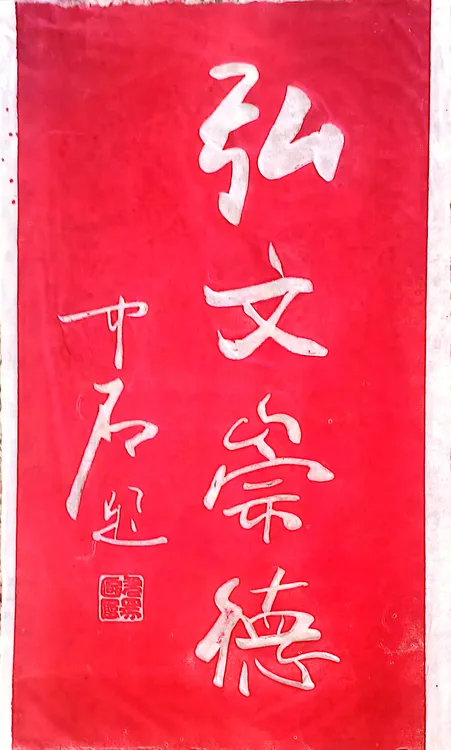 弘文崇德
中石题